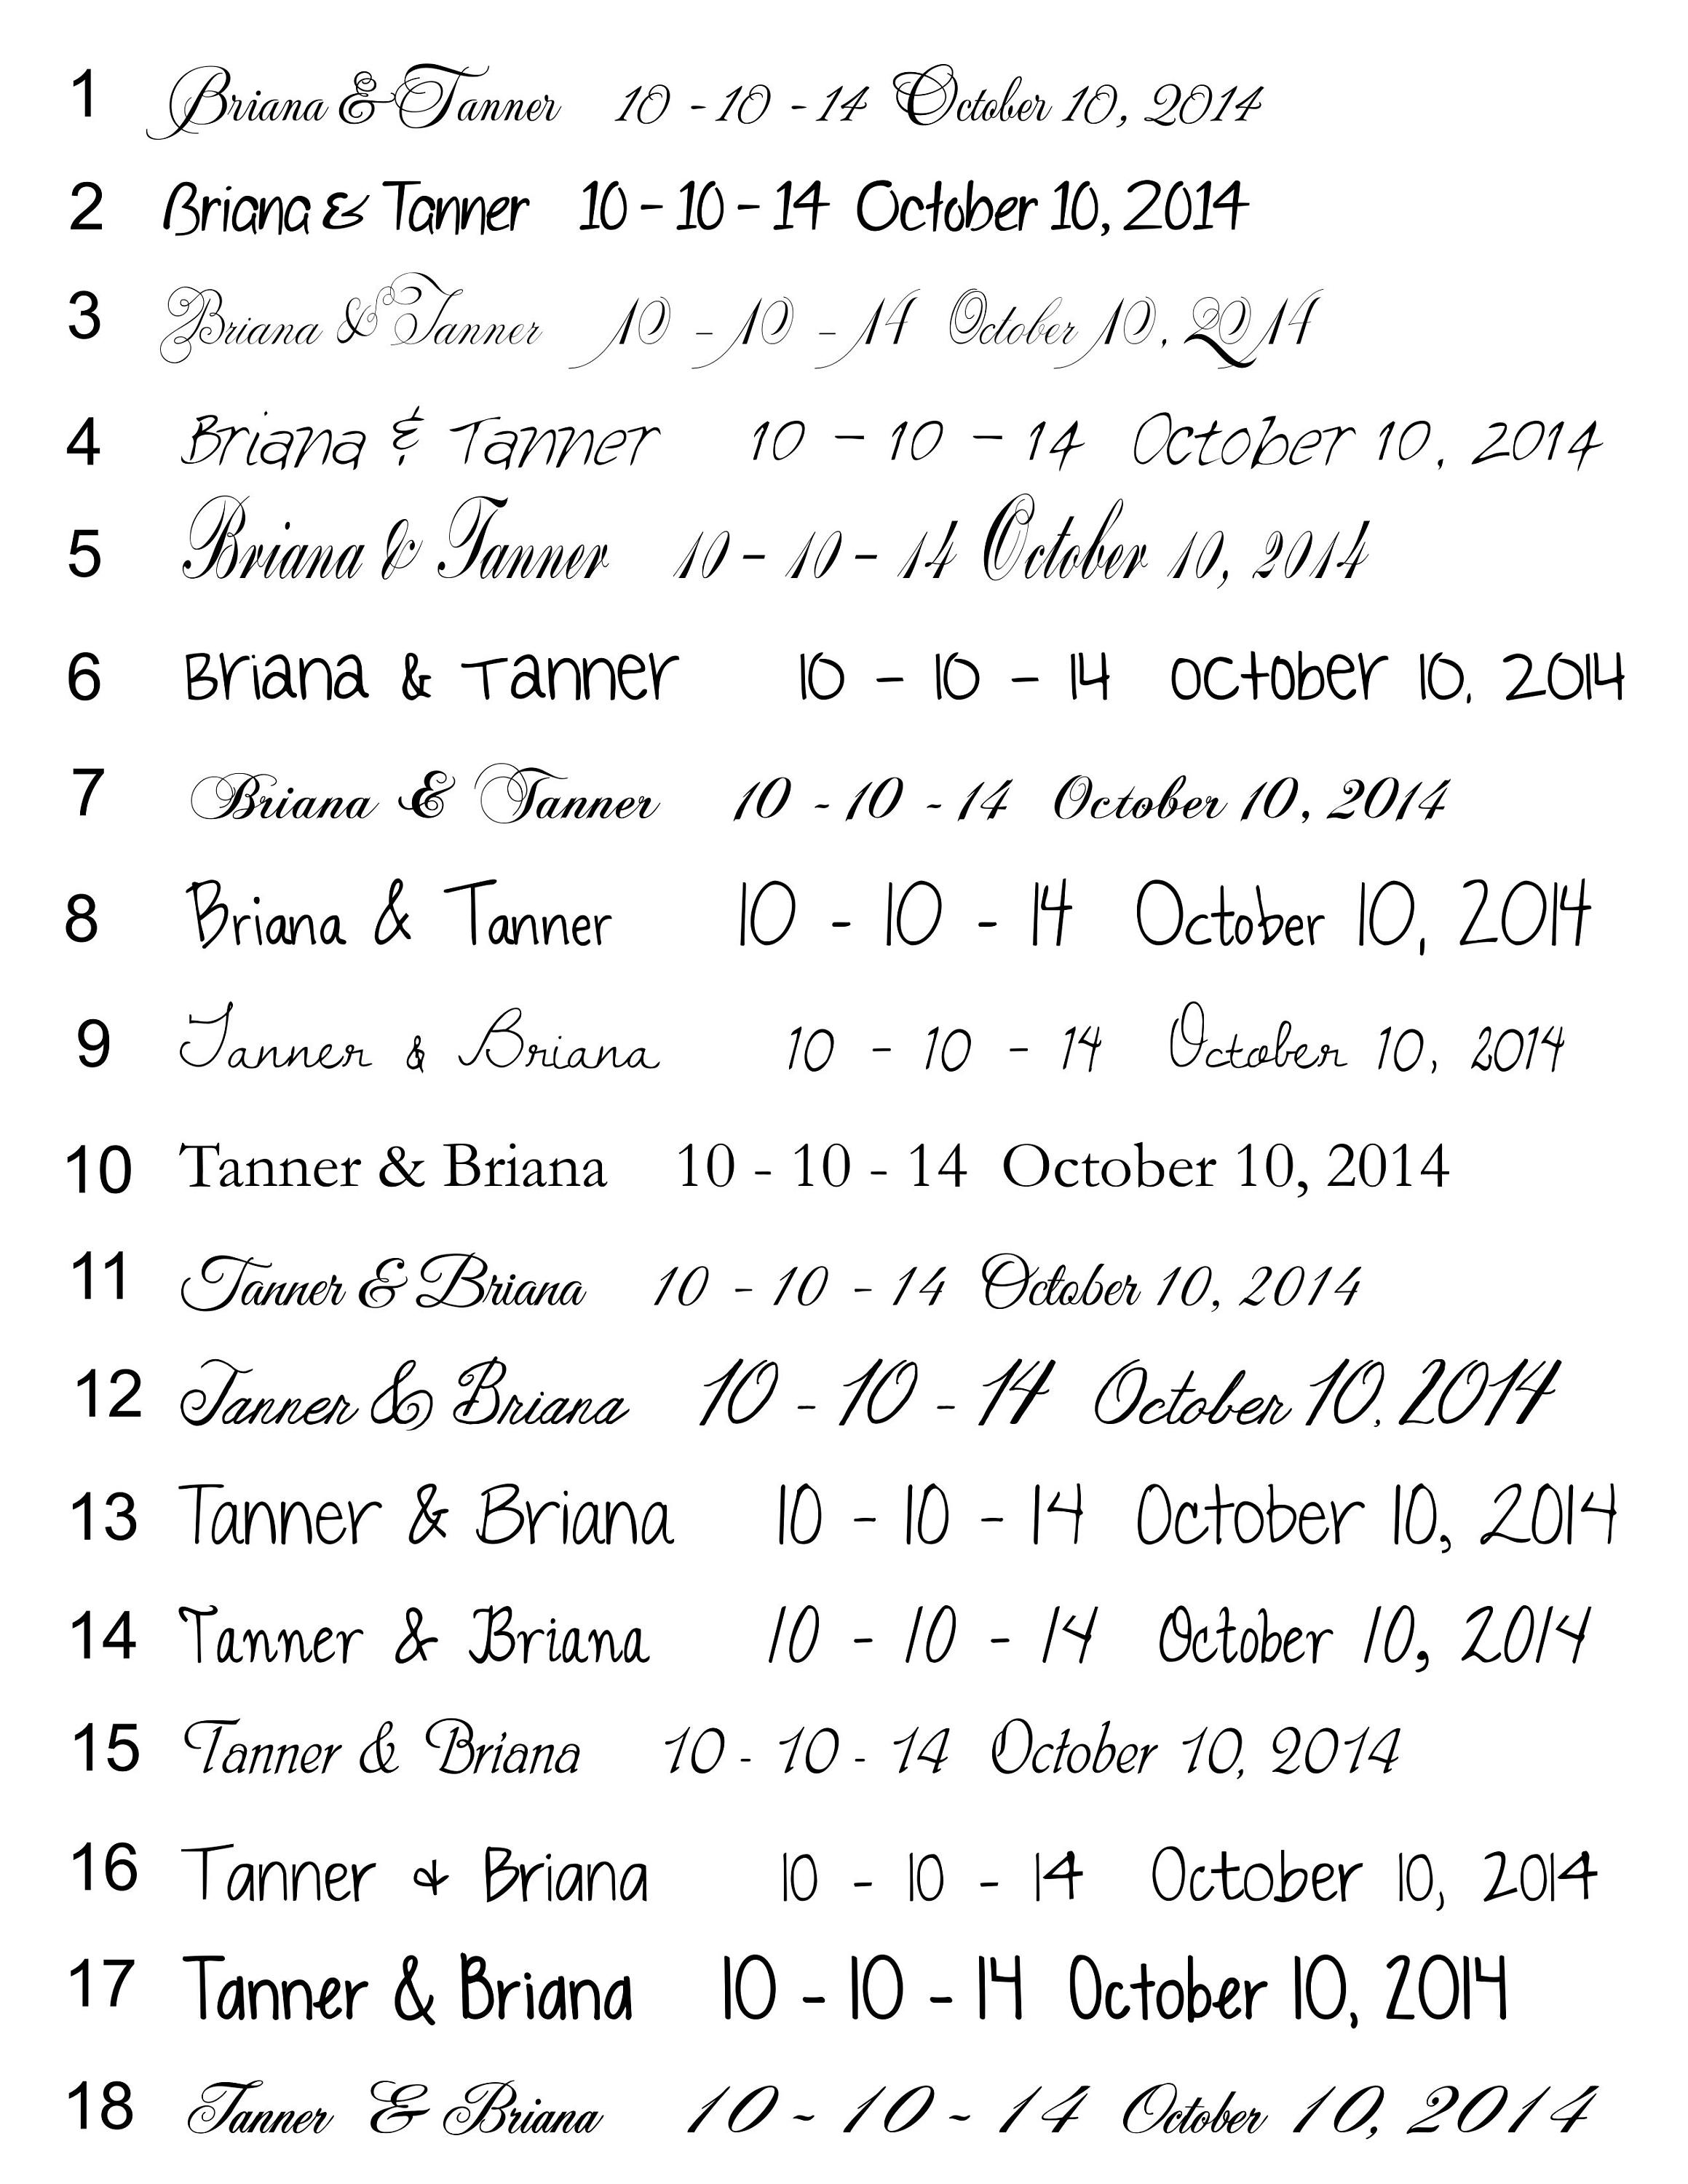 1 Briana & Tanner 10 - 10 - 14 October 10, 2014
2 Briana & Tanner 10 - 10 - 14 October 10, 2014
3 Briana & Tanner 10 - 10 - 14 October 10, 2014
4 Briana & Tanner 10 - 10 - 14 October 10, 2014
5 Briana & Tanner 10 - 10 - 14 October 10, 2014
6 Briana & Tanner 10 - 10 - 14 October 10, 2014
7 Briana & Tanner 10 - 10 - 14 October 10, 2014
8 Briana & Tanner 10 - 10 - 14 October 10, 2014
9 Tanner & Briana 10 - 10 - 14 October 10, 2014
10 Tanner & Briana 10 - 10 - 14 October 10, 2014
11 Tanner & Briana 10 - 10 - 14 October 10, 2014
12 Tanner & Briana 10 - 10 - 14 October 10, 2014
13 Tanner & Briana 10 - 10 - 14 October 10, 2014
14 Tanner & Briana 10 - 10 - 14 October 10, 2014
15 Tanner & Briana 10 - 10 - 14 October 10, 2014
16 Tanner & Briana 10 - 10 - 14 October 10, 2014
17 Tanner & Briana 10 - 10 - 14 October 10, 2014
18 Tanner & Briana 10 - 10 - 14 October 10, 2014